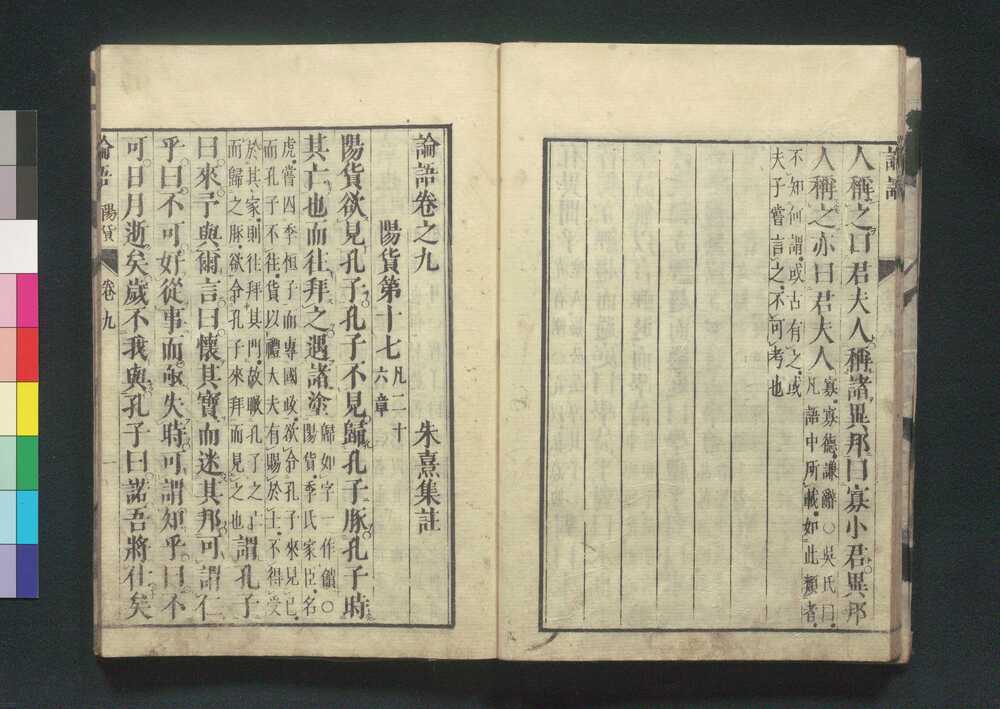 論語
人稱之曰君夫人稱諸異邦曰寡小君異邦
人稱之亦曰君夫人
寡寡德謙辭○吳氏曰
凡語中所載如此類者
不知何謂或古有之或
夫子嘗言之不可考也
論語卷之九 朱熹集註
陽貨第十七
凡二十
六章
陽貨欲見孔子孔子不見歸孔子豚孔子時
其亡也而往拜之遇諸塗
歸如字一作饋○
陽貨季氏家臣名
虎嘗囚季桓子而專國政欲令孔子來見已
而孔子不往貨以禮大夫有賜於士不得受
於其家則往拜其門故瞰孔子之亡
而歸之豚欲令孔子來拜而見之也
謂孔子
曰來予與爾言曰懷其寶而迷其邦可謂仁
乎曰不可好從事而亟失時可謂知乎曰不
可日月逝矣歲不我與孔子曰諾吾將仕矣
論語 陽貨 卷九